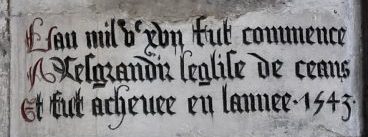 Lan mil vᶜ xvij fut commence
A resgrandir leglise de ceans
Et fut acheuee en lannee · 1543 ·